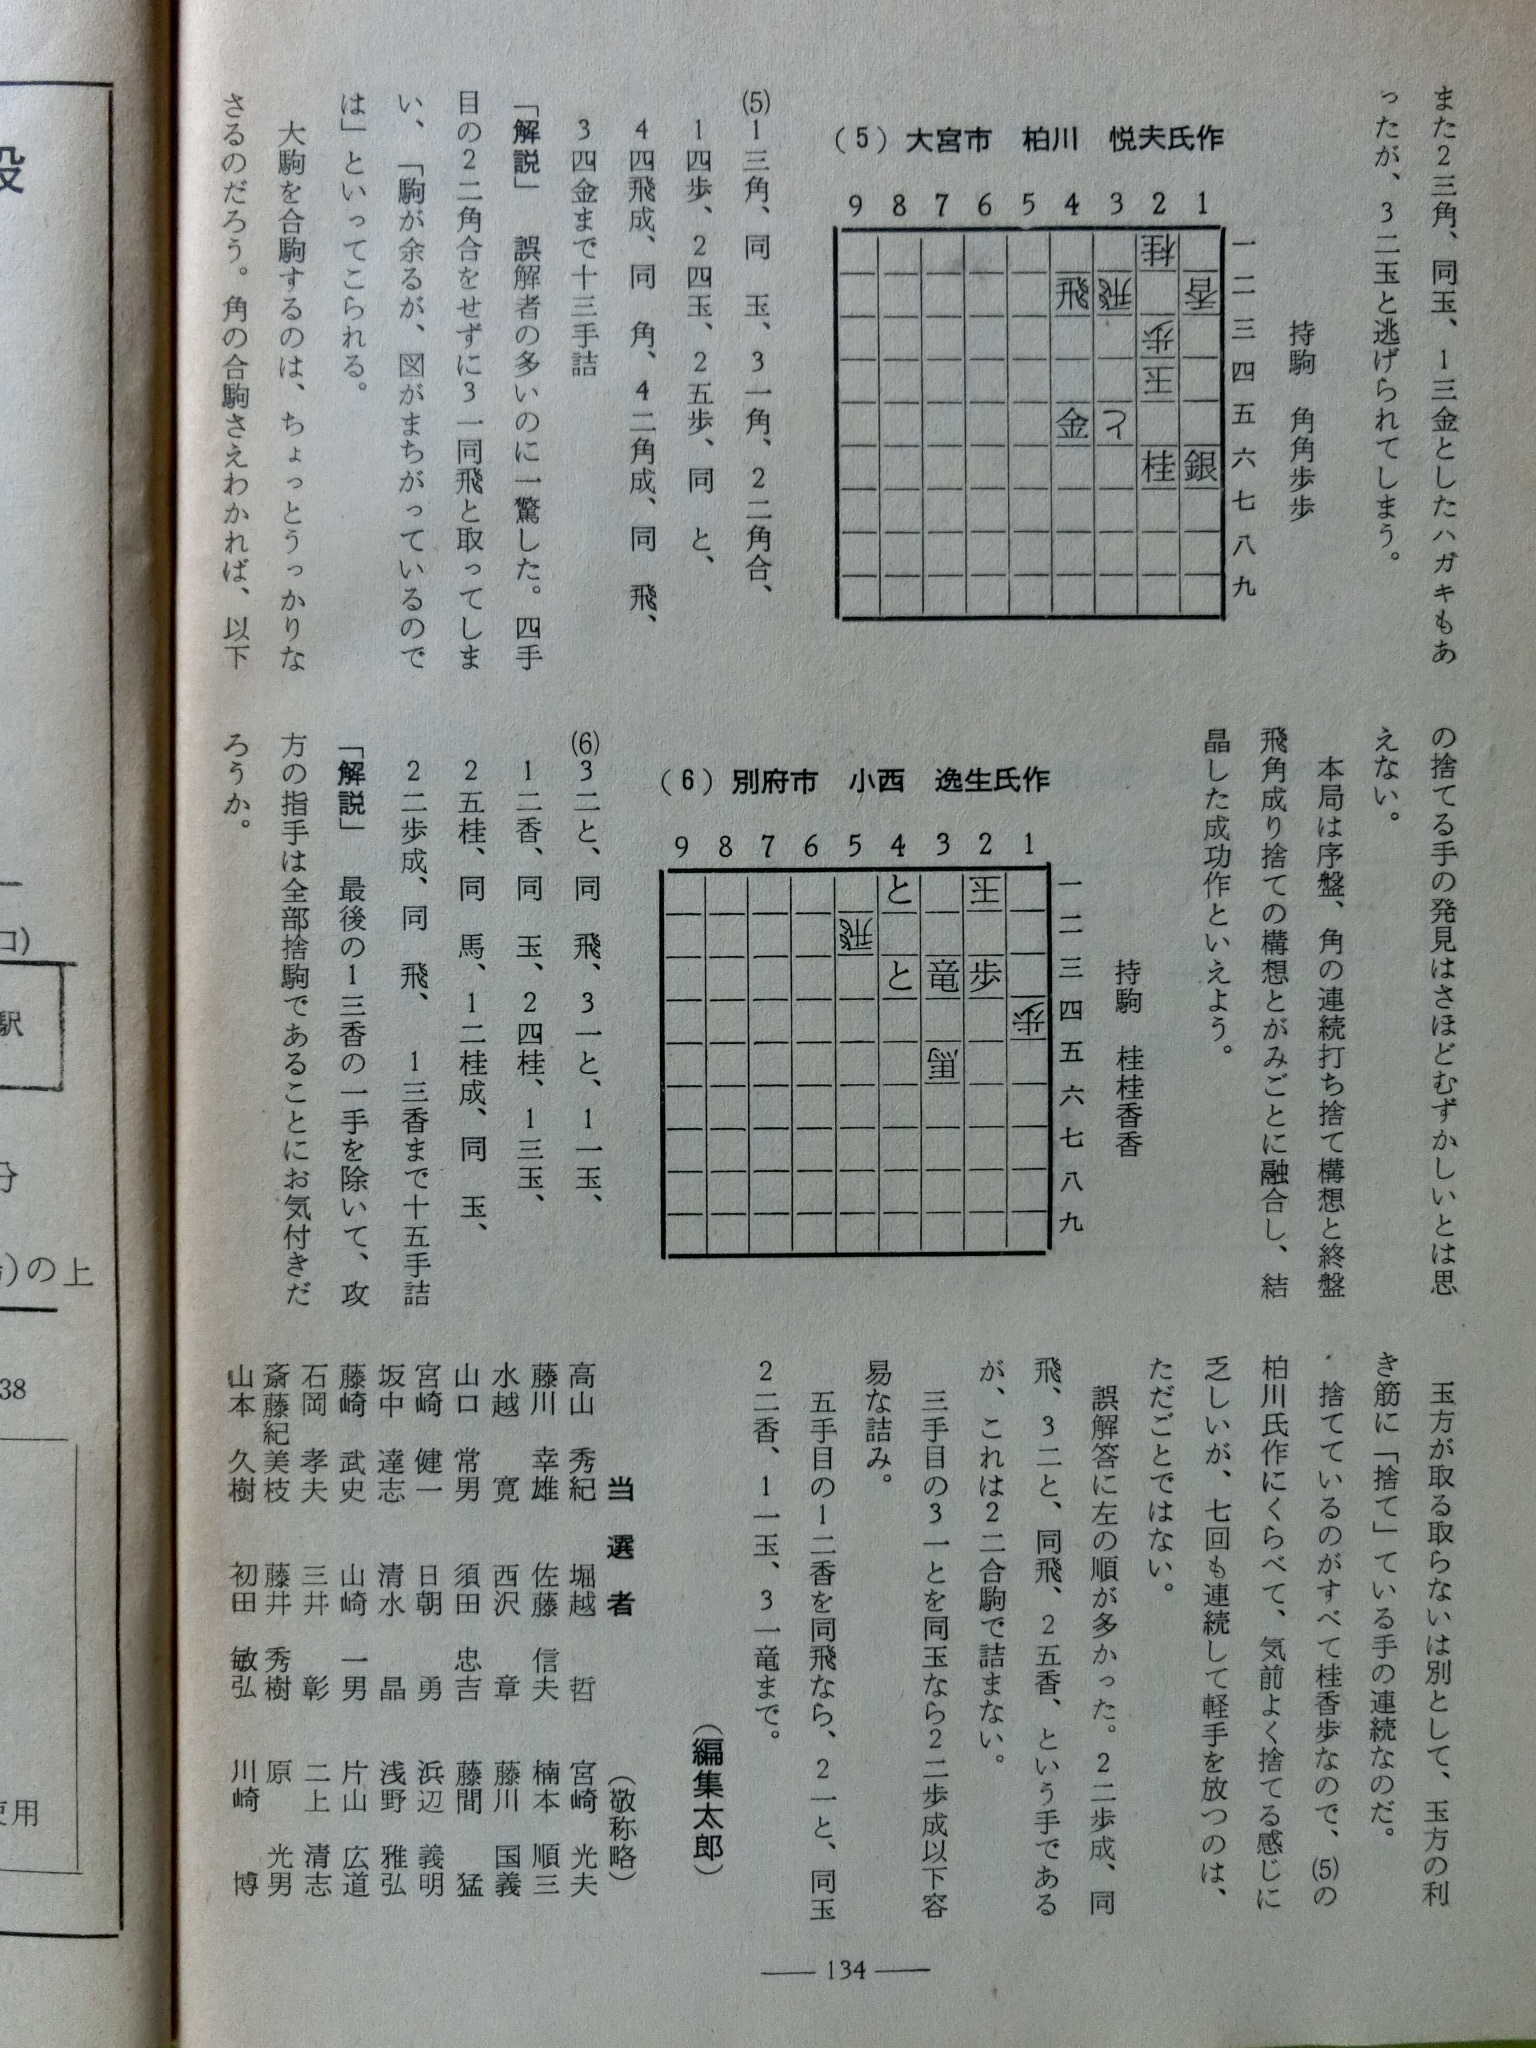 また2三角、同玉、1三金としたハガキもあ
ったが、3二玉と逃げられてしまう。
(5)大宮市 柏川 悦夫氏作
持駒 角角歩歩
9 8 7 6 5 4 3 2 1
一
二
三
四
五
六
七
八
九
桂
飛 飛 香
歩
玉
金 と
桂 銀
(5)1三角、同 玉、3一角、2二角合、
1四歩、2四玉、2五歩、同 と、
4四飛成、同 角、4二角成、同 飛、
3四金まで十三手詰
「解説」 誤解者の多いのに一驚した。四手
目の2二角合をせずに3一同飛と取ってしま
い、「駒が余るが、図がまちがっているので
は」といってこられる。
大駒を合駒するのは、ちょっとうっかりな
さるのだろう。角の合駒さえわかれば、以下
の捨てる手の発見はさほどむずかしいとは思
えない。
本局は序盤、角の連続打ち捨て構想と終盤
飛角成り捨ての構想とがみごとに融合し、結
晶した成功作といえよう。
(6)別府市 小西 逸生氏作
持駒 桂桂香香
9 8 7 6 5 4 3 2 1
一
二
三
四
五
六
七
八
九
と 玉
飛
と 竜 歩
歩
馬
(6)3二と、同 飛、3一と、1一玉、
1二香、同 玉、2四桂、1三玉、
2五桂、同 馬、1二桂成、同 玉、
2二歩成、同 飛、 1三香まで十五手詰
「解説」 最後の1三香の一手を除いて、攻
方の指手は全部捨駒であることにお気付きだ
ろうか。
玉方が取る取らないは別として、玉方の利
き筋に「捨て」ている手の連続なのだ。
捨てているのがすべて桂香歩なので、(5)の
柏川氏作にくらべて、気前よく捨てる感じに
乏しいが、七回も連続して軽手を放つのは、
ただごとではない。
誤解答に左の順が多かった。2二歩成、同
飛、3二と、同飛、2五香、という手である
が、これは2二合駒で詰まない。
三手目の3一とを同玉なら2二歩成以下容
易な詰み。
五手目の1二香を同飛なら、2一と、同玉
2二香、1一玉、3一竜まで。
(編集太郎)
当選者 (敬称略)
高山 秀紀 堀越 哲 宮崎 光夫
藤川 幸雄 佐藤 信夫 楠本 順三
水越 寛 西沢 章 藤川 国義
山口 常男 須田 忠吉 藤間 猛
宮崎 健一 日朝 勇 浜辺 義明
坂中 達志 清水 晶 浅野 雅弘
藤崎 武史 山崎 一男 片山 広道
石岡 孝夫 三井 彰 二上 清志
斎藤紀美枝 藤井 秀樹 原 光男
山本 久樹 初田 敏弘 川崎 博
134
駅
分
)の上
38
使用